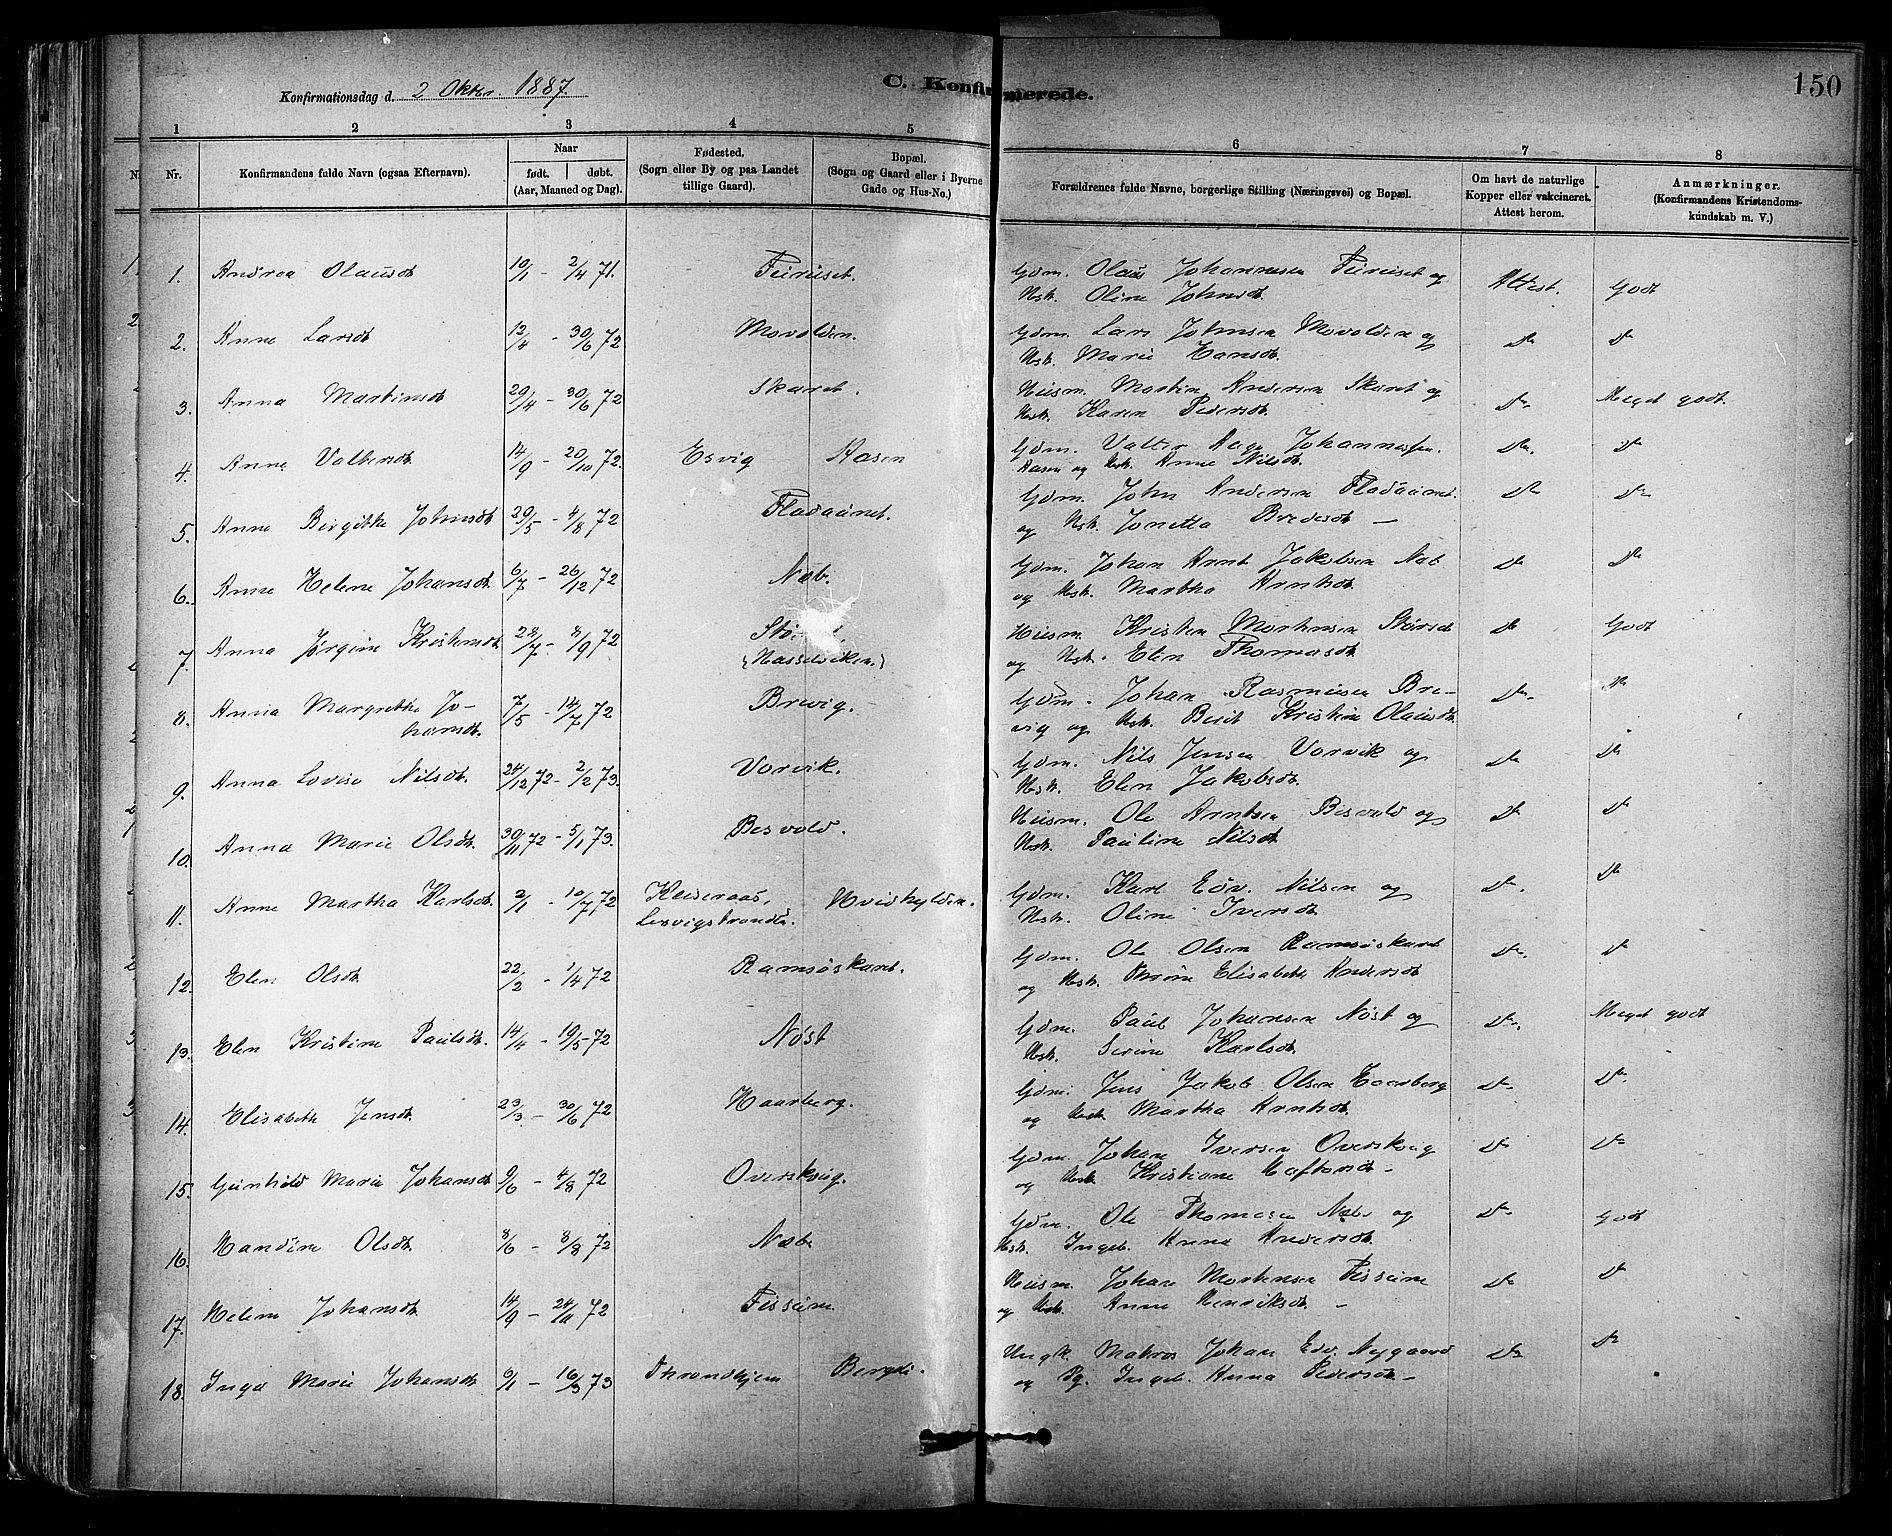 Konfirmationsdag d. 2 Oktbr. 1887.
C. Konfirmerede.
150
1 2 3 4 5 6 7 8
Nr.
Konfirmandens fulde Navn (ogsaa Efternavn).
Naar
født. | døbt.
(Aar, Maaned og Dag).
Fødested.
(Sogn eller By og paa Landet
tillige Gaard).
Bopæl.
(Sogn og Gaard eller i Byerne
Gade og Hus-No.)
Forældrenes fulde Navne, borgerlige Stilling (Næringsvei) og Bopæl.
Om havt de naturlige
Kopper eller vakcineret.
Attest herom.
Anmærkninger.
(Konfirmandens Kristendoms-
kundskab m. V.)
1. Andrea Olausdt. 10/1 - 2/4 71. Gdm. Olaus Johannesen og
Hstr. Oline Johnsdt. Attest. Godt
2. Anne Larsdt 12/4 - 30/6 72 Movolden. Gdm. Lars Johnsen Movolden og
Hstr. Marie Hansdt. Do Do
3. Anna Martinsdt 20/4 - 30/6 72 Skaret. Husm. Martin Andersen Skaret og
Hstr. Karen Pedersdt. Do Meget godt.
4. Anne Valtersdt 14/9 - 20/10 72. Esvig Aasen Gdm. Valter Aage Johannessen
Aasen og Hstr. Anne Nilsdt. Do Do
5. Anne Birgitte Johnsdt 20/5 - 4/8 72 Fladaunet. Gdm. John Andersen Fladaunet.
og Hstr. Jonetta Bredesdt — Do Do
6. Anne Helene Johansdt. 6/7 - 26/12 72 Næb. Gdm. Johan Arnt Jakobsen Næb
og Hstr. Martha Arntsdt. Do Do
7. Anna Jørgine Kristensdt 28/7 - 8/9 72
(Hasselviken.) Husm. Kristen Mortensen Størset
og Hstr. Elen Thomasdt Do Godt
8. Anna Margrethe Jo-
hansdt. 7/5 - 14/7 72 Brevig. Gdm. Johan Rasmusen Bre-
vig og Hstr. Berit Kristine Olausdt. Do Do
9. Anna Lovise Nilsdt. 24/12 72 - 2/2 73. Vorvik. Gdm. Nils Jensen Vorvik og
Hstr. Elen Jakobsdt. Do Do
10. Anna Marie Olsdt. 30/11 72 - 5/1 73. Besvold. Husm. Ole Arntsen Besvold og
Hstr. Pauline Nilsdt Do Do
11. Anne Martha Karlsdt. 2/1 - 10/7 72 Keiseraas,
Lesvigstranden. Hvidhylden. Gdm. Karl Edv. Nilsen og
Hstr. Oline Iversdt. Do Do
12. Elen Olsdt. 22/2 - 1/4 72 Ramsøskaret. Gdm. Ole Olsen Ramsøskaret
og Hstr. Elisabeth Andersdt Do Do
13. Elen Kristine Paulsdt. 14/4 - 19/5 72 Nøst Gdm. Paul Johansen Nøst og
Hstr. Serine Karlsdt. Do Meget godt
14. Elisabeth Jensdt. 23/3 - 30/6 72 Haarberg. Gdm. Jens Jakob Olsen Haarberg
og Hstr. Martha Arntsdt. Do Do
15. Gunhild Marie Johansdt 9/6 - 4/8 72 Overskvig. Gdm. Johan Iversen Overskvig
og Hstr. Kristiane Haftorsdt — Do Do
16. Handine Olsdt. 8/6 - 8/8 72 Næb Gdm. Ole Thomesen Næb og
Hstr. Ingeb. Anna Andersdt. Do Godt
17. Heline Johansdt. 14/9 - 24/11 72 Fissum. Husm. Johan Mortensen Fissum
og Hstr. Anne Henriksdt. — Do Do
18. Inga Marie Johansdt. 6/1 - 16/3 73 Throndhjem Ungk. Matros Johan Edv. Nygaard
og Pg. Ingeb. Anna Pedersdt. — Do Do